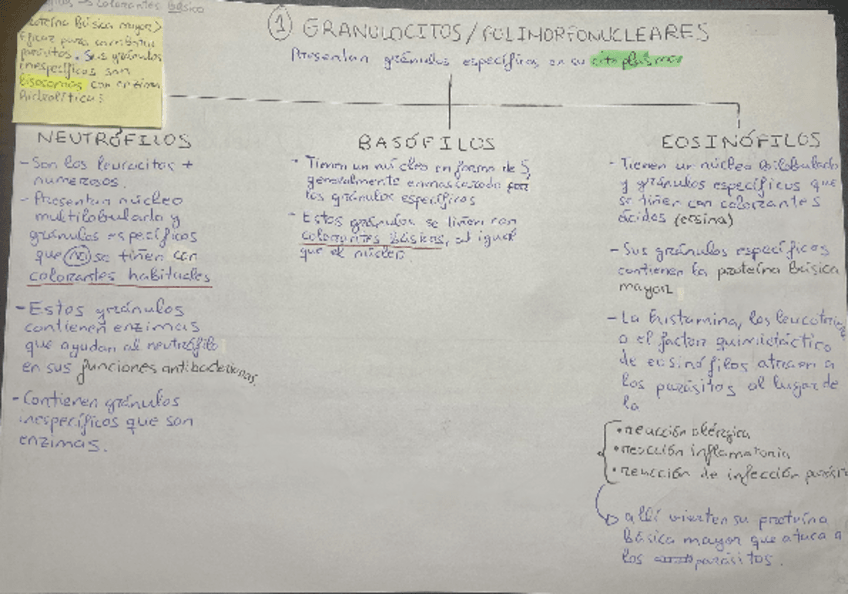 → colorantes básico
proteína básica mayor →
eficaz para combatir
parásitos. Sus gránulos
inespecíficos son
lisosomas con enzimas
hidrolíticas
① GRANULOCITOS/POLIMORFONUCLEARES
Presentan gránulos específicos en su citoplasma
NEUTRÓFILOS
- Son los leucocitos +
numerosos.
- Presentan núcleo
multilobulado y
gránulos específicos
que NO se tiñen con
colorantes habituales
- Estos gránulos
contienen enzimas
que ayudan al neutrófilo
en sus funciones antibacterianas.
- Contienen gránulos
inespecíficos que son
enzimas.
BASÓFILOS
- Tienen un núcleo en forma de S,
generalmente enmascarado por
los gránulos específicos
- Estos gránulos se tiñen con
colorantes básicos, al igual
que el núcleo.
EOSINÓFILOS
- Tienen un núcleo bilobulado
y gránulos específicos que
se tiñen con colorantes
ácidos (eosina)
- Sus gránulos específicos
contienen la proteína básica
mayor
- La histamina, los
o el factor quimiotáctico
de eosinófilos atraen a
los parásitos al lugar de
la
• reacción alérgica
• reacción inflamatoria
• reacción de infección
allí vierten su proteína
básica mayor que ataca a
los parásitos.